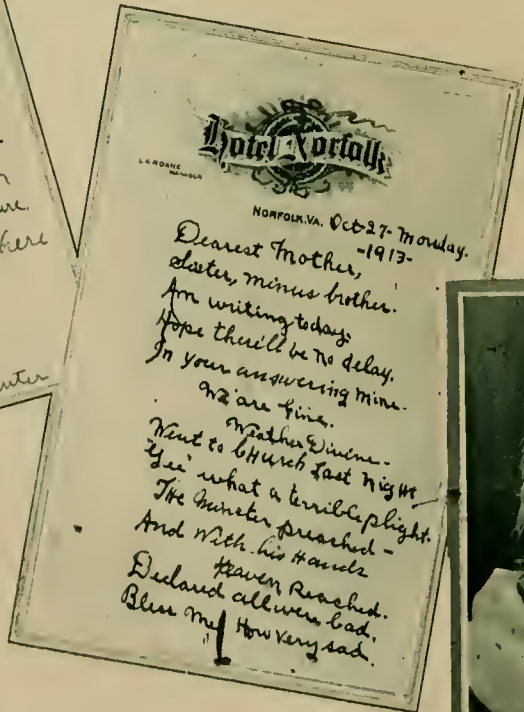 Hotel Norfolk
L.A. ROANE
MANAGER
NORFOLK, VA. Oct-27-Monday.
-1913-
Dearest Mother,
Sister, minus brother.
Am writing today.
Hope there'll be no delay.
In your answering mine.
We are fine.
Weather Divine-
Went to CHurch Last Night
"Gee" what a terrible plight.
THe Minister preached-
And With his Hands
Heaven Reached.
Declared all were bad.
Bless Me! How very sad.
here